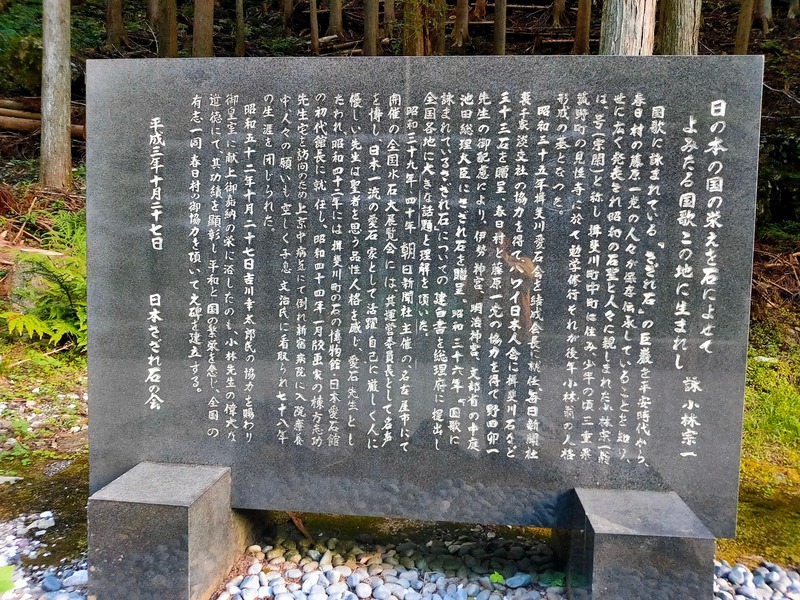 日の本の国の栄えを石によせて
よみたる国歌この地に生まれし 詠 小林宗一
国歌に詠まれている『さざれ石』の巨巌を平安時代から、
春日村の藤原一党の人々が保存伝承していることを知り、
世に広く発表され昭和の石聖と人々に親しまれた小林宗一
は、号(宗閑)と称し揖斐川町中町に住み、少年の頃三重県
菰野町の見性寺に於て勉学修行それが後年小林翁の人格
形成の基となった。
昭和三十五年揖斐川愛石会を結成会長に就任毎日新聞社
裏千家淡交社の協力を得てハワイ日本人会に揖斐川石など
三十三石を贈呈、春日村と藤原一党の協力を得て野田卯一
先生の御配意により、伊勢神宮、明治神宮、文部省の中庭
池田総理大臣にさざれ石を贈呈。昭和三十六年『国歌に
詠まれているさざれ石』についての建白書を総理府に提出し
全国各地に大きな話題と理解を頂いた。
昭和三十九年、四十年 朝日新聞社主催の、名古屋市にて
開催の全国水石大展覧会には、其運営委員長として名声
を博し日本一流の愛石家として活躍 自己に厳しく人に
優しい先生は聖者を思う品性人格を感じ、愛石先生とし
たわれ昭和四十二年には揖斐川町の石の博物館 日本愛石館
の初代館長に就任し、昭和四十四年一月版画家の棟方志功
先生宅を訪問のため上京中病にて倒れ新宿病院に入院療養
中人々の願いも空しく子息 文治氏に看取られ七十八年
の生涯を閉じられた。
昭和五十二年十月二十七日吉川幸太郎氏の協力を賜わり
御皇室に献上御嘉納の栄に浴したのも、小林先生の偉大な
道徳にて、其功績を顕彰し平和と国の繁栄を念じ、全国の
有志一同春日村の御協力を頂いて文碑を建立する。
平成三年十月二十七日 日本さざれ石の会